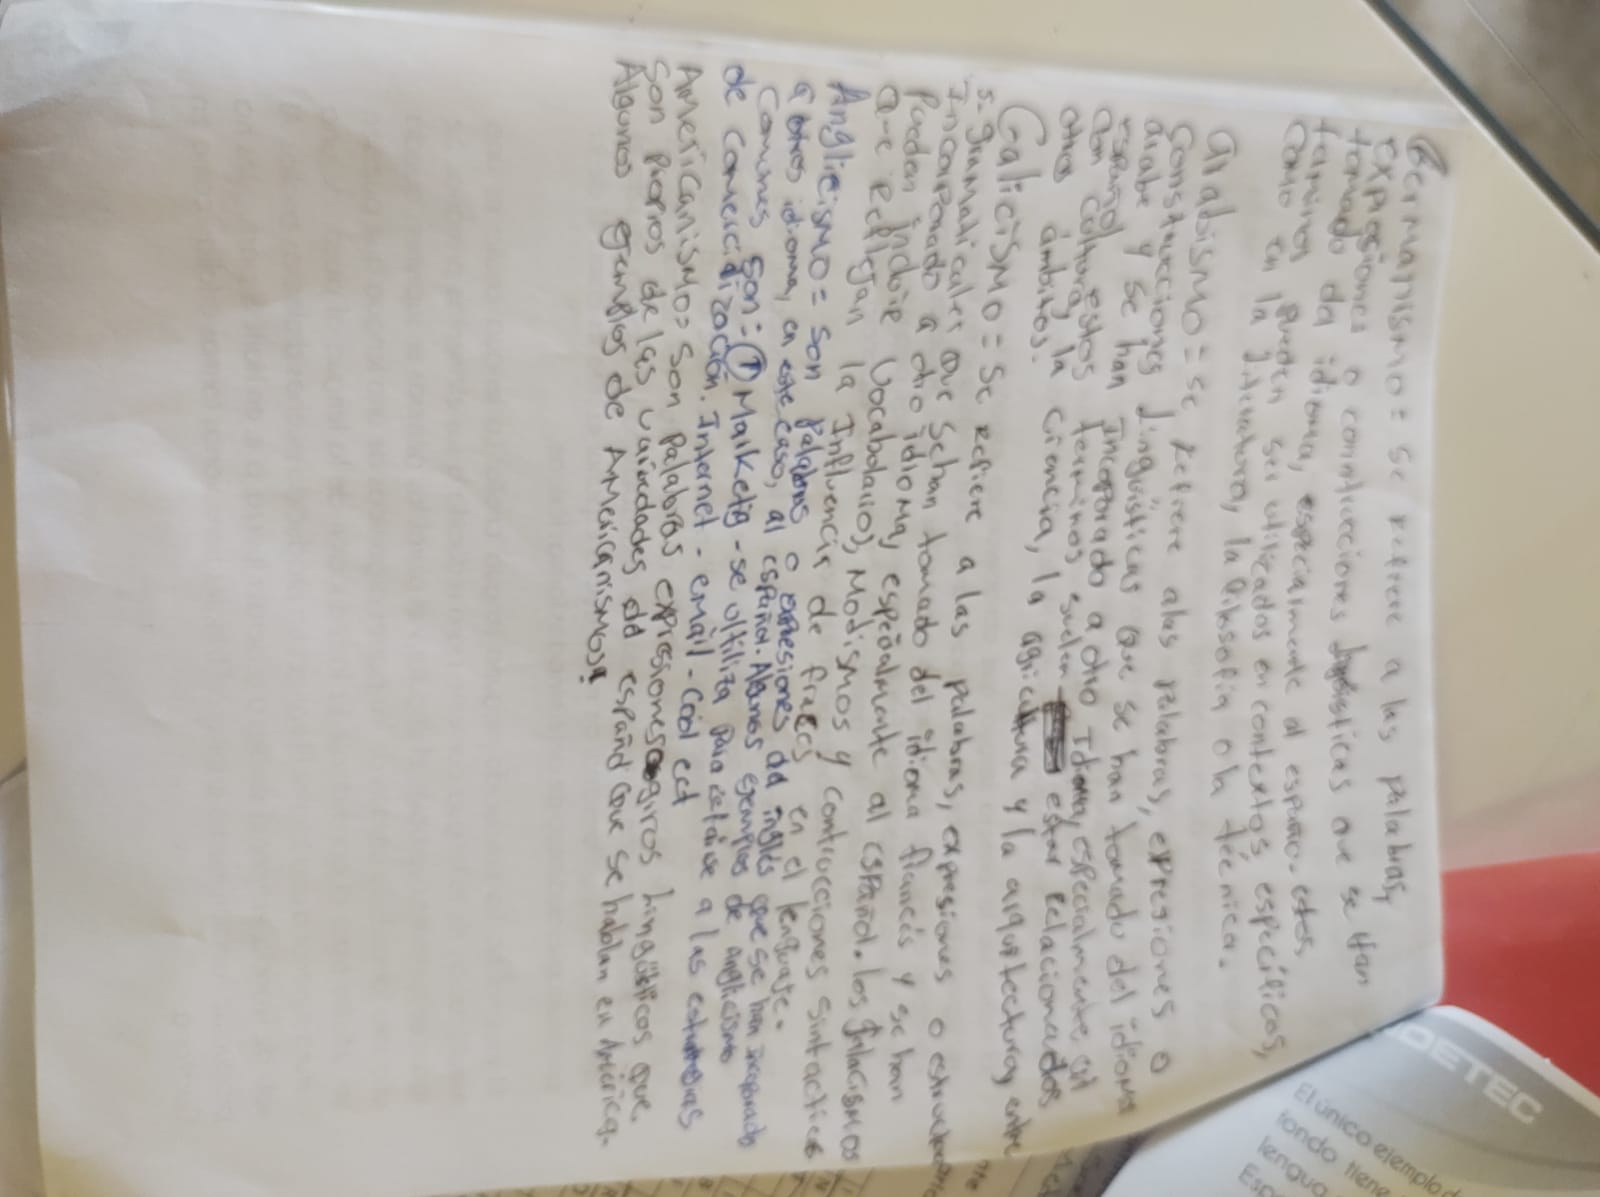 Germanismo = se refiere a las palabras,
expresiones o contrucciones lingüísticas que se Han
tomado del idioma, especialmente al español. estos
terminos pueden ser utilizados en contextos específicos,
como en la literatura, la filosofía o la técnica.
arabismo = se refiere alas palabras, expresiones o
construcciones lingüísticas que se han tomado del idioma
arabe y se han Incorporado a otro Idioma, especialmente al
español, estos terminos suelen estar relacionados
con cultura, la ciencia, la agricultura y la arquitectura, entre
otros ámbitos.
Galicismo = Se refiere a las palabras, expresiones o
s. gramaticales que se han tomado del idioma francés y se han
Incorporado a otro idioma, espeñalmente al español. los galacismos
pueden incluir Vocabolario), Modismos y contrucciones sintacticas
que reflejan la Influencia de frases en el lenguaje.
Anglicismo = son palabras o expresiones del inglés que se han
a otros idioma, en este caso, al español. Algunos ejemplos de Anglicismo
Comunes son: ① Marketig - se ultiliza para
de comercialización. Internet - email - Cool ect
Americanismo = Son palabras expresiones o giros lingüísticos que.
Son propios de las variedades del español que se hablan en América.
Algunos ejemplos de Americanismos:
DETEC
El único ejemplo
fondo tiene
lengua
Esp